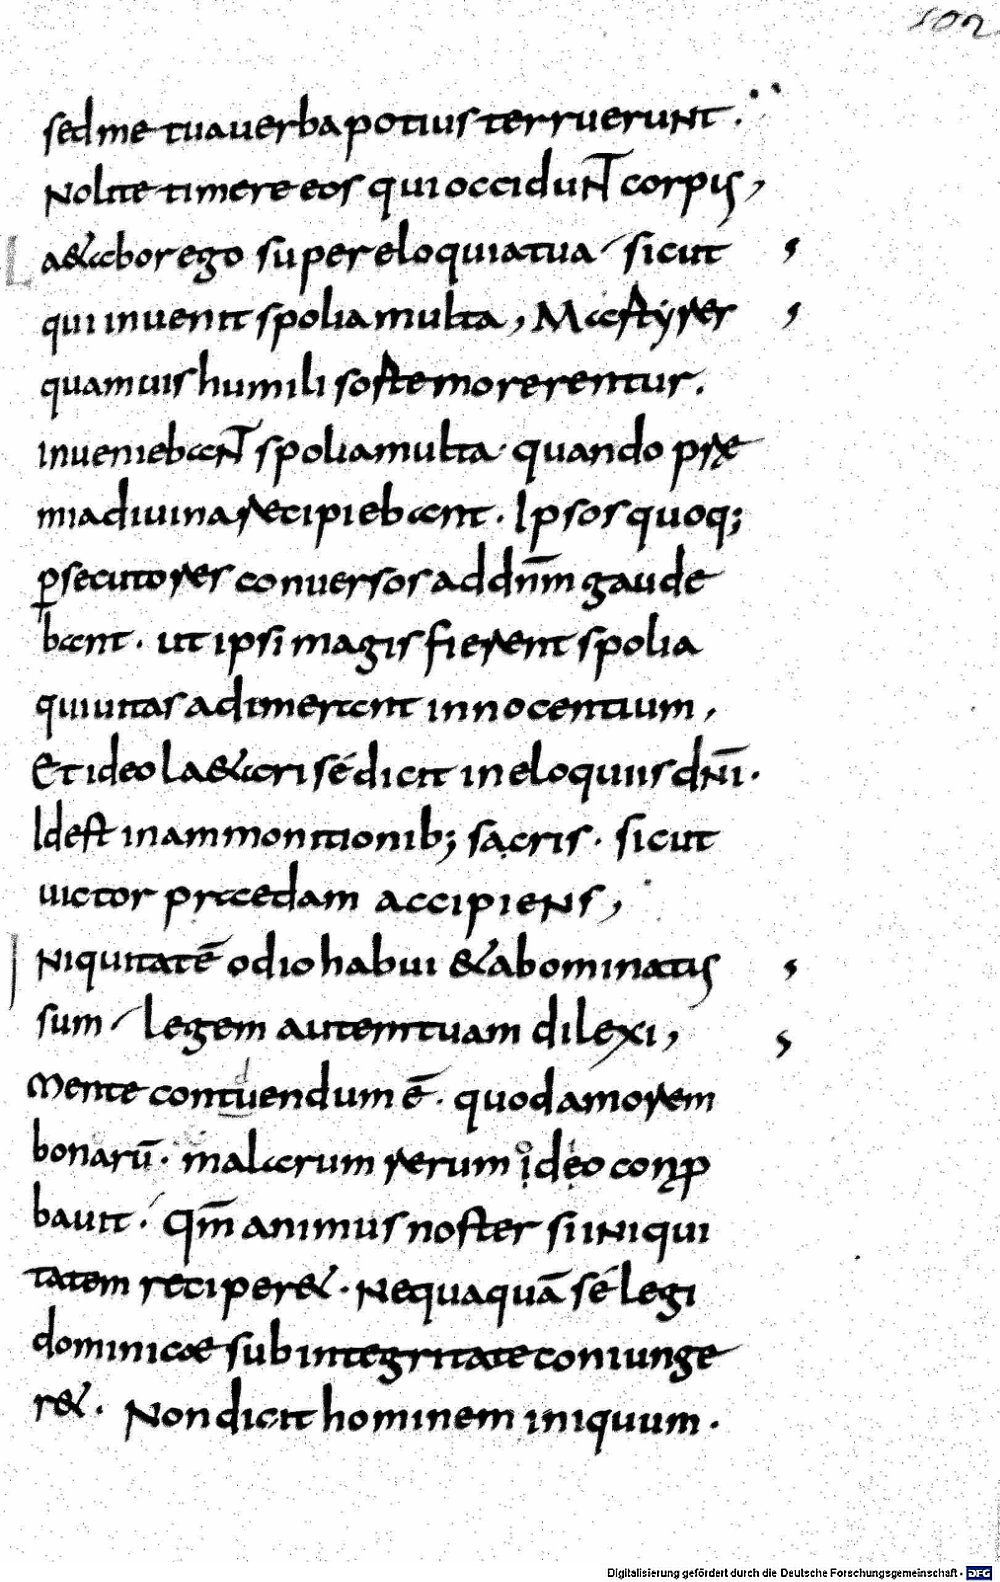 502
sed me tua uerba potius terruerunt.
Nolite timere eos qui occidunt corpus,
L a&abor ego super eloquia tua sicut
qui inuenit spolia multa, Martyres
quamuis humili sorte morerentur.
inueniebant spolia multa. quando prę
mia diuina recipiebant. Ipsos quoq;
ꝑsecutores conuersos ad dn̄m gaude
bant. ut ipsi magis fierent spolia
qui uitas adimerent innocentium,
Et ideo la&ari sé dicit in eloquiis dn̄i.
Id est in ammonitionib; sacris. sicut
uictor praedam accipiens,
I Niquitatē odio habui & abominatus
sum legem autem tuam dilexi,
Mente contuendum ē. quod amorem
bonarū. malarum rerum ideo conꝓ
bauit. Qm̄ animus noster si iniqui
tatem reciper&. Nequaquā sé legi
dominicae sub integritate coniunge
r&. Non dicit hominem iniquum.
Digitalisierung gefördert durch die Deutsche Forschungsgemeinschaft - DFG